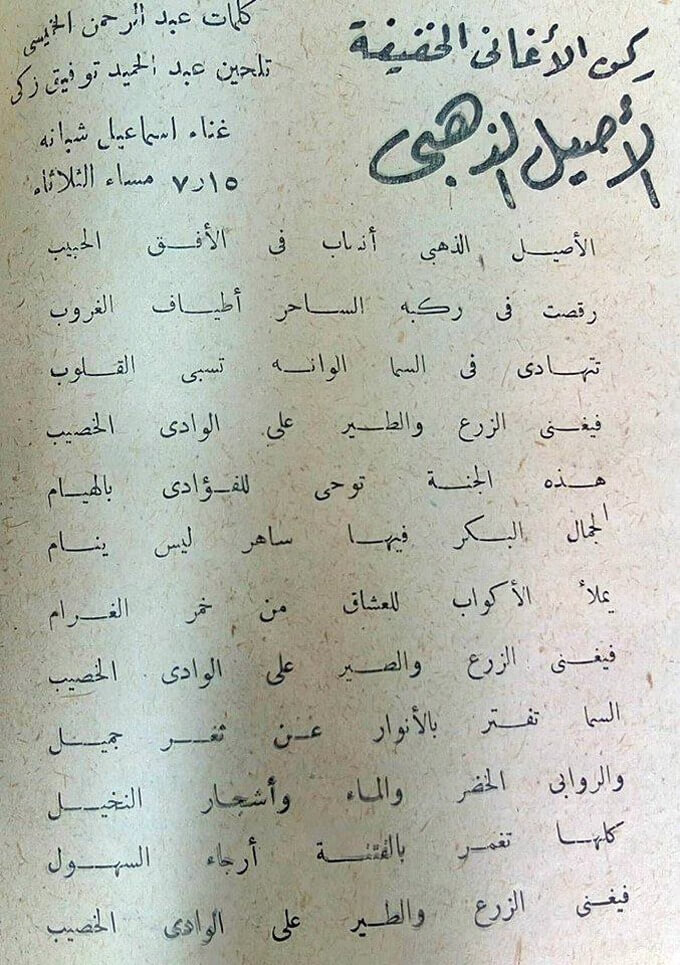 ركن الأغانى الخفيفة
الأصيل الذهبى
كلمات عبد الرحمن الخميسى
تلحين عبد الحميد توفيق زكى
غناء اسماعيل شبانه
٧ر١٥ مساء الثلاثاء
الأصيل الذهبى أنساب فى الأفق الحبيب
رقصت فى ركبه الساحر أطياف الغروب
تتهادى فى السما الوانه تسبى القلوب
فيغنى الزرع والطير على الوادى الخصيب
هذه الجنة توحى للفؤادى بالهيام
الجمال البكر فيها ساهر ليس ينام
يملأ الأكواب للعشاق من خمر الغرام
فيغنى الزرع والصير على الوادى الخصيب
السما تفتر بالأنوار عن ثغر جميل
والروابى الخضر والماء وأشجار النخيل
كلها تغمر بالفتنة أرجاء السهول
فيغنى الزرع والطير على الوادى الخصيب